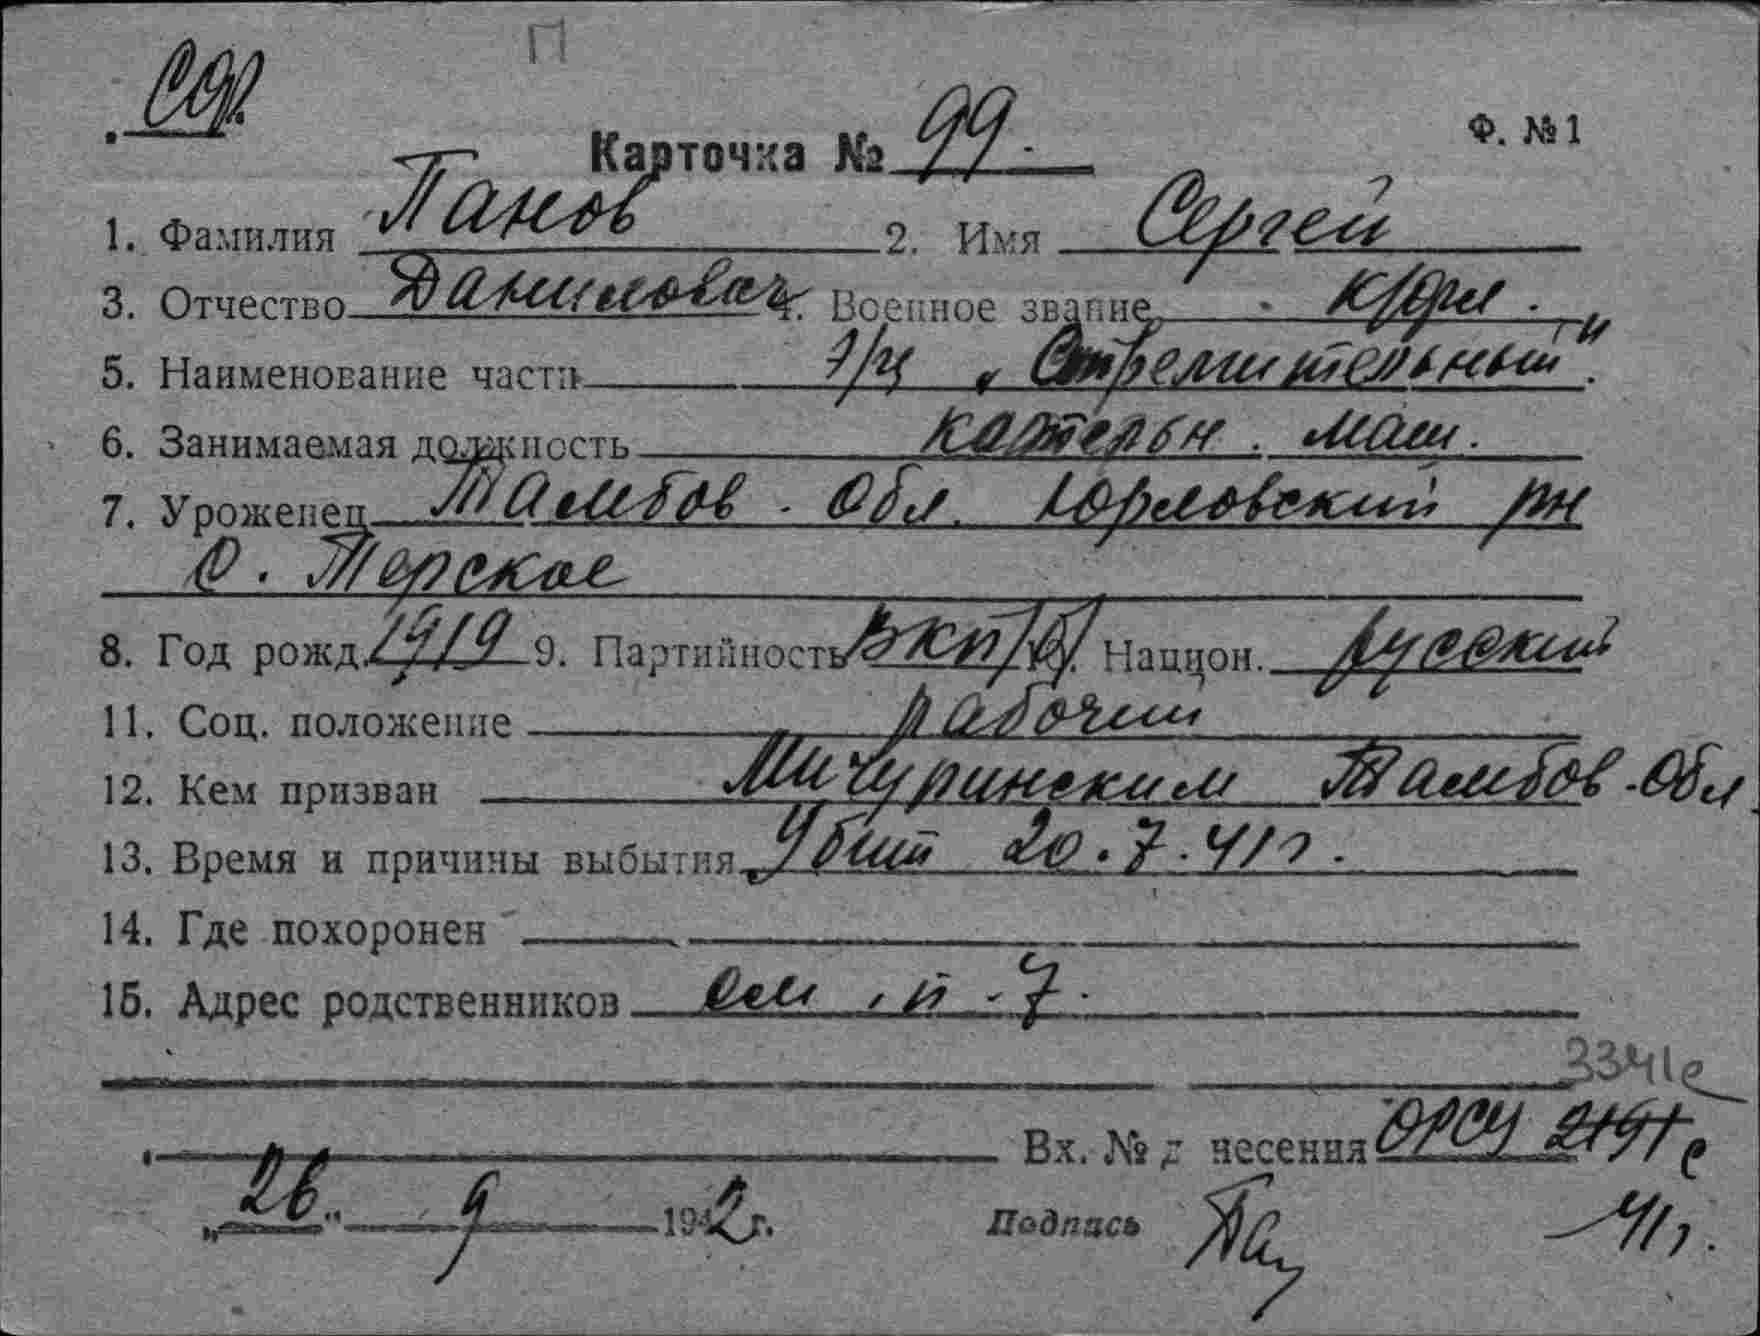 П
СФ.
Карточка № 99. Ф. №1
1. Фамилия Панов 2. Имя Сергей
3. Отчество Данилович 4. Военное звание к/фл.
5. Наименование части э/м „Стремительный".
6. Занимаемая должность котельн. маш.
7. Уроженец Тамбов. Обл. Юрловский рн
с. Терское
8. Год рожд. 1919 9. Партийность ВКП/б/. Национ. русский
11. Соц. положение рабочий
12. Кем призван Мичуринским Тамбов. Обл.
13. Время и причины выбытия Убит 20.7.41г.
14. Где похоронен
15. Адрес родственников см. п. 7.
3341с
Вх. № д несения ОРСУ 2191с
„26" 9 1942г. Подпись 41г.